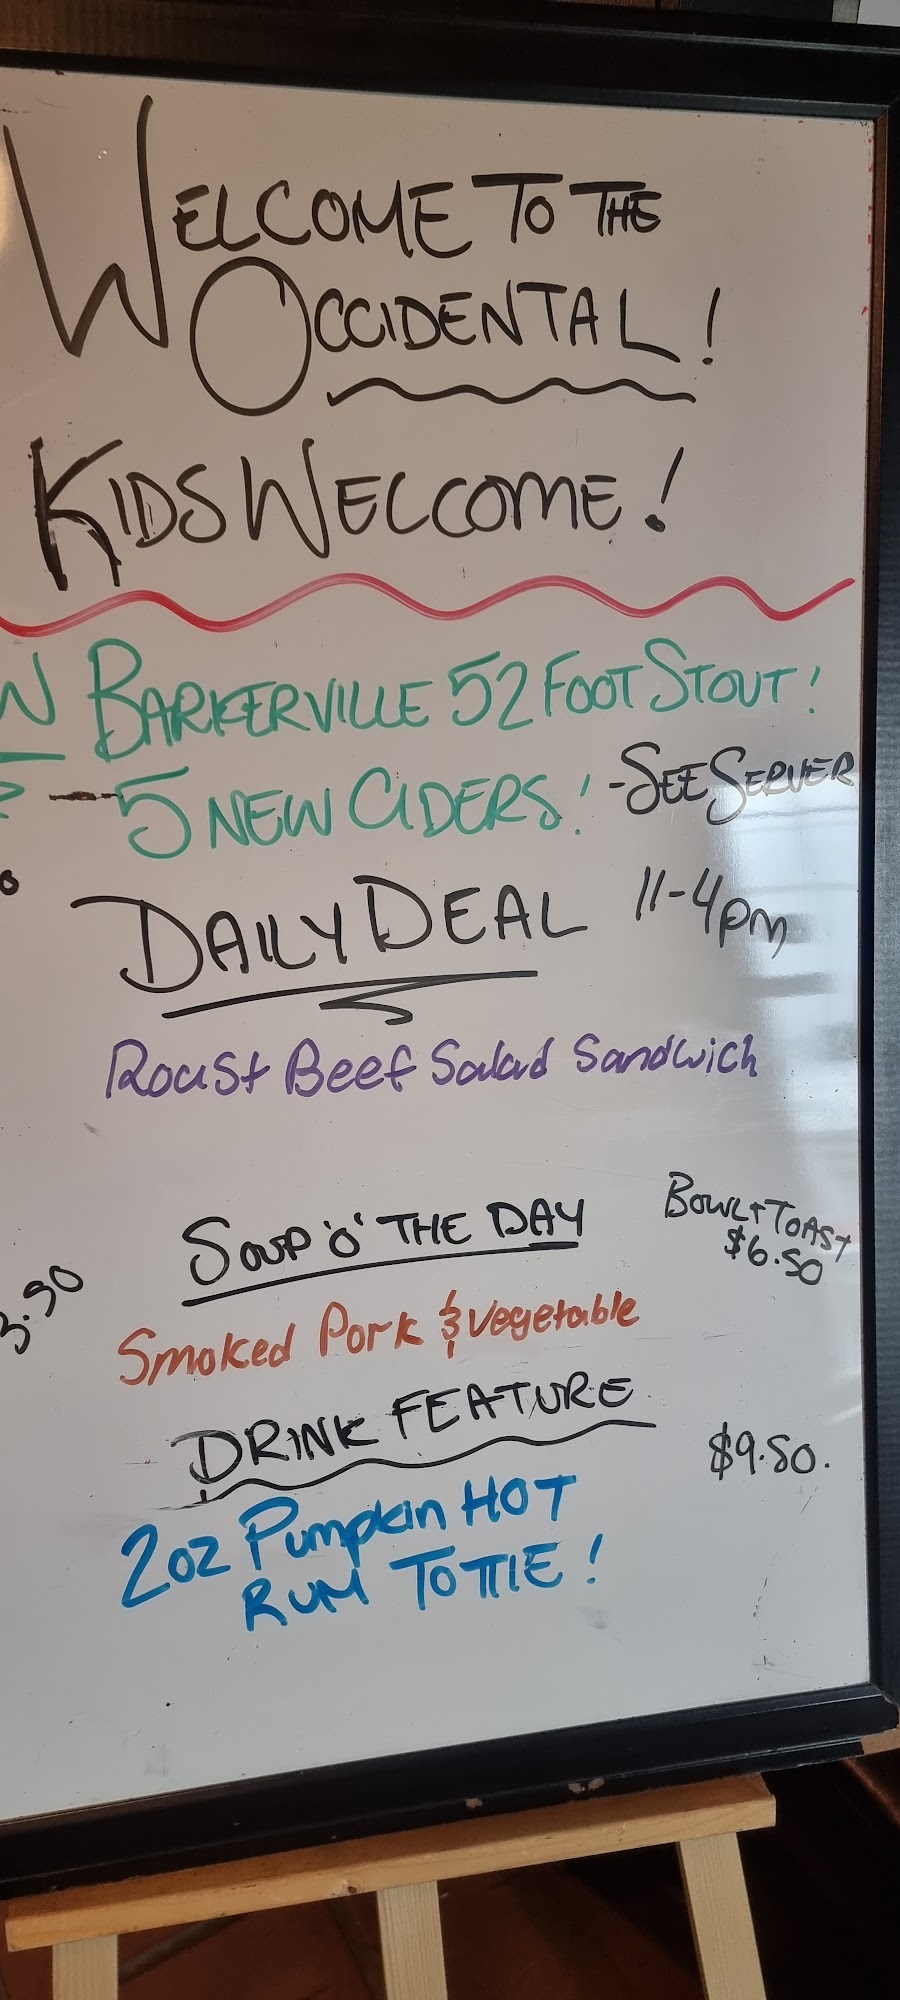 WELCOME TO THE
OCCIDENTAL!
KIDS WELCOME!
BARKERVILLE 52 FOOT STOUT!
- 5 NEW CIDERS! -SEE SERVER
DAILY DEAL 11-4pm
Roast Beef Salad Sandwich
SOUP 'O' THE DAY BOWL + TOAST
$6.50
3.50
Smoked Pork & Vegetable
DRINK FEATURE
$9.50.
2oz Pumpkin HOT
RUM TOTTIE!